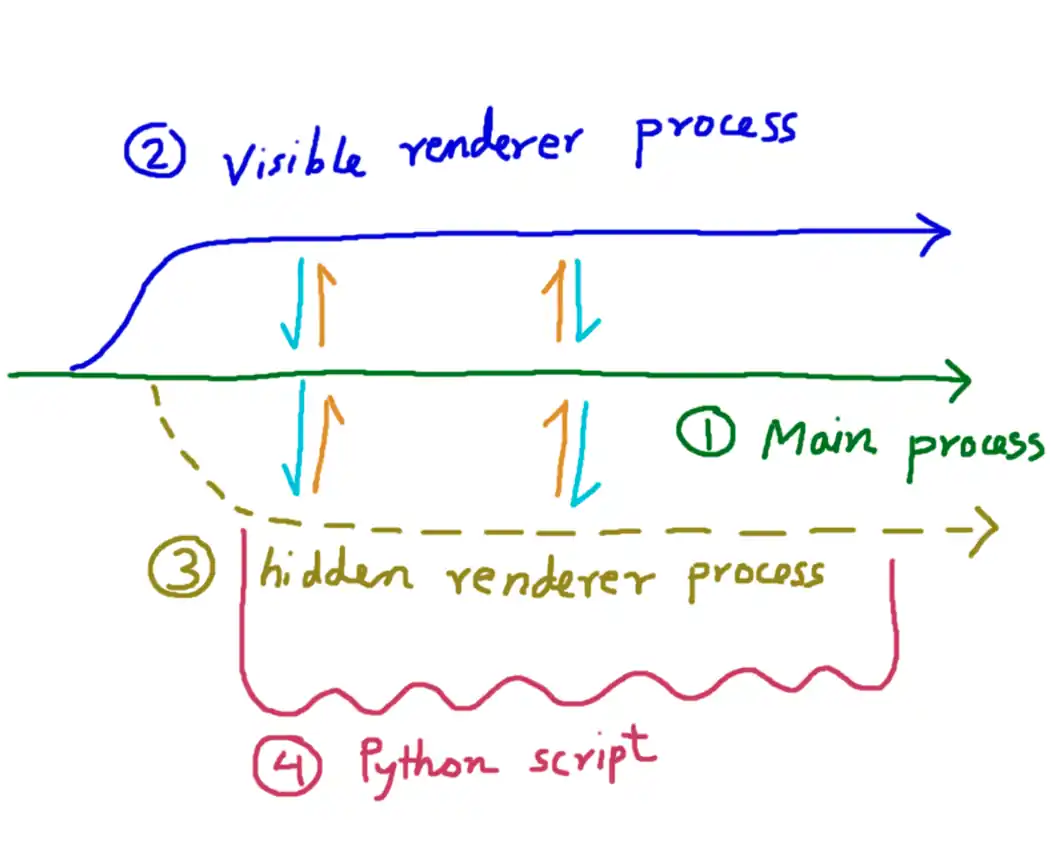 ② Visible renderer process
① Main process
③ hidden renderer process
④ Python script